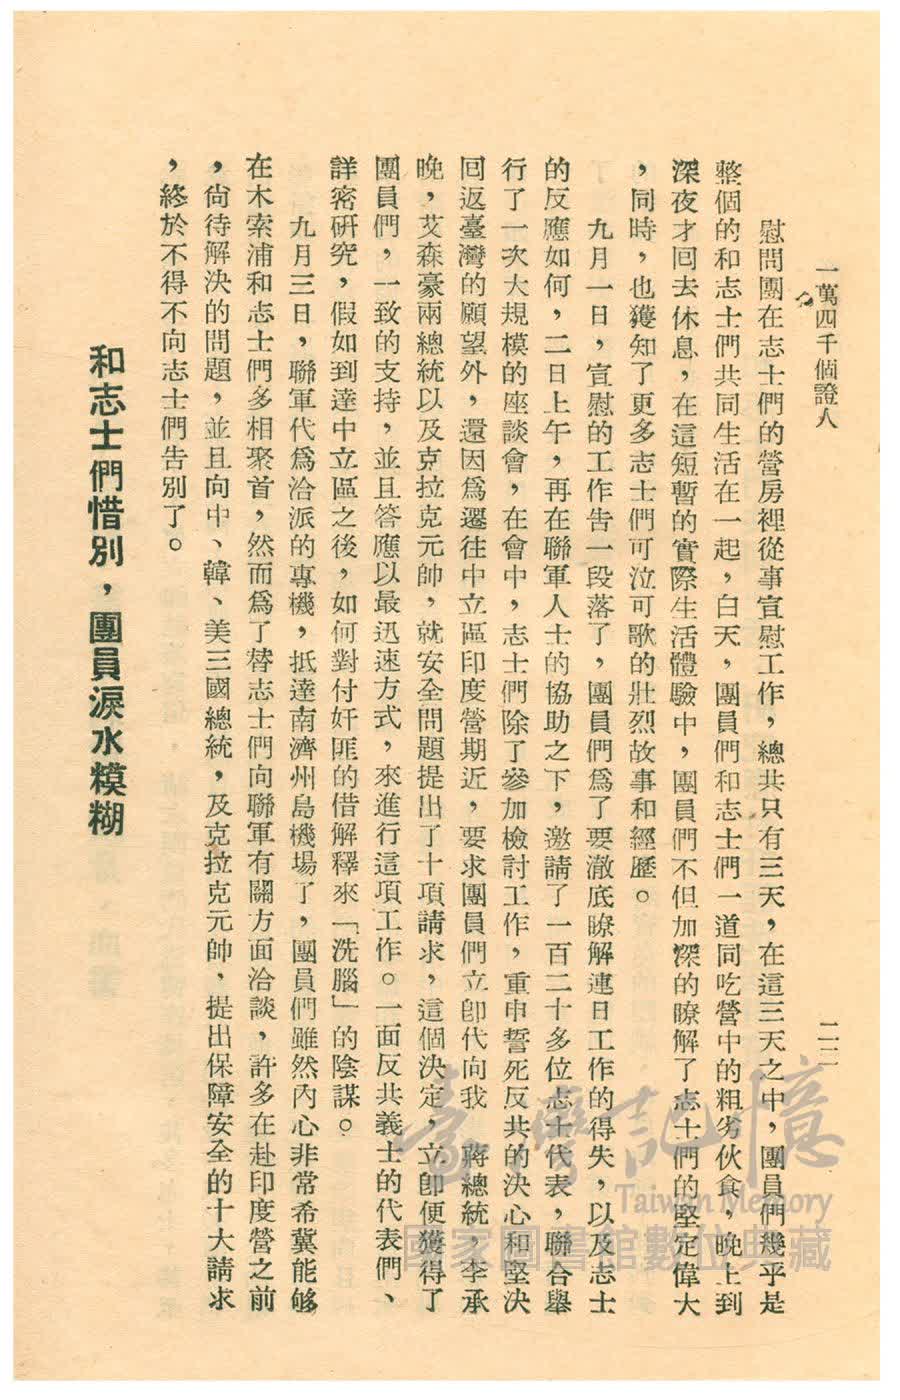 一萬四千個證人
二二
慰問團在志士們的營房裡從事宣慰工作，總共只有三天，在這三天之中，團員們幾乎是
整個的和志士們共同生活在一起，白天，團員們和志士們一道同吃營中的粗劣伙食，晚上到
深夜才回去休息，在這短暫的實際生活體驗中，團員們不但加深的瞭解了志士們的堅定偉大
，同時，也獲知了更多志士們可泣可歌的壯烈故事和經歷。
九月一日，宣慰的工作告一段落了，團員們爲了要澈底瞭解連日工作的得失，以及志士
的反應如何，二日上午，再在聯軍人士的協助之下，邀請了一百二十多位志士代表，聯合舉
行了一次大規模的座談會，在會中，志士們除了參加檢討工作，重申誓死反共的決心和堅決
回返臺灣的願望外，還因爲遷往中立區印度營期近，要求團員們立卽代向我　蔣總統，李承
晚，艾森豪兩總統以及克拉克元帥，就安全問題提出了十項請求，這個決定，立卽便獲得了
團員們，一致的支持，並且答應以最迅速方式，來進行這項工作。一面反共義士的代表們、
詳密研究，假如到達中立區之後，如何對付奸匪的借解釋來「洗腦」的陰謀。
九月三日，聯軍代爲洽派的專機，抵達南濟州島機場了，團員們雖然內心非常希冀能够
在木索浦和志士們多相聚首，然而爲了替志士們向聯軍有關方面洽談，許多在赴印度營之前
，尙待解決的問題，並且向中、韓、美三國總統，及克拉克元帥、提出保障安全的十大請求
，終於不得不向志士們告別了。
和志士們惜別，團員淚水糢糊
臺灣記憶
Taiwan Memory
國家圖書館數位典藏